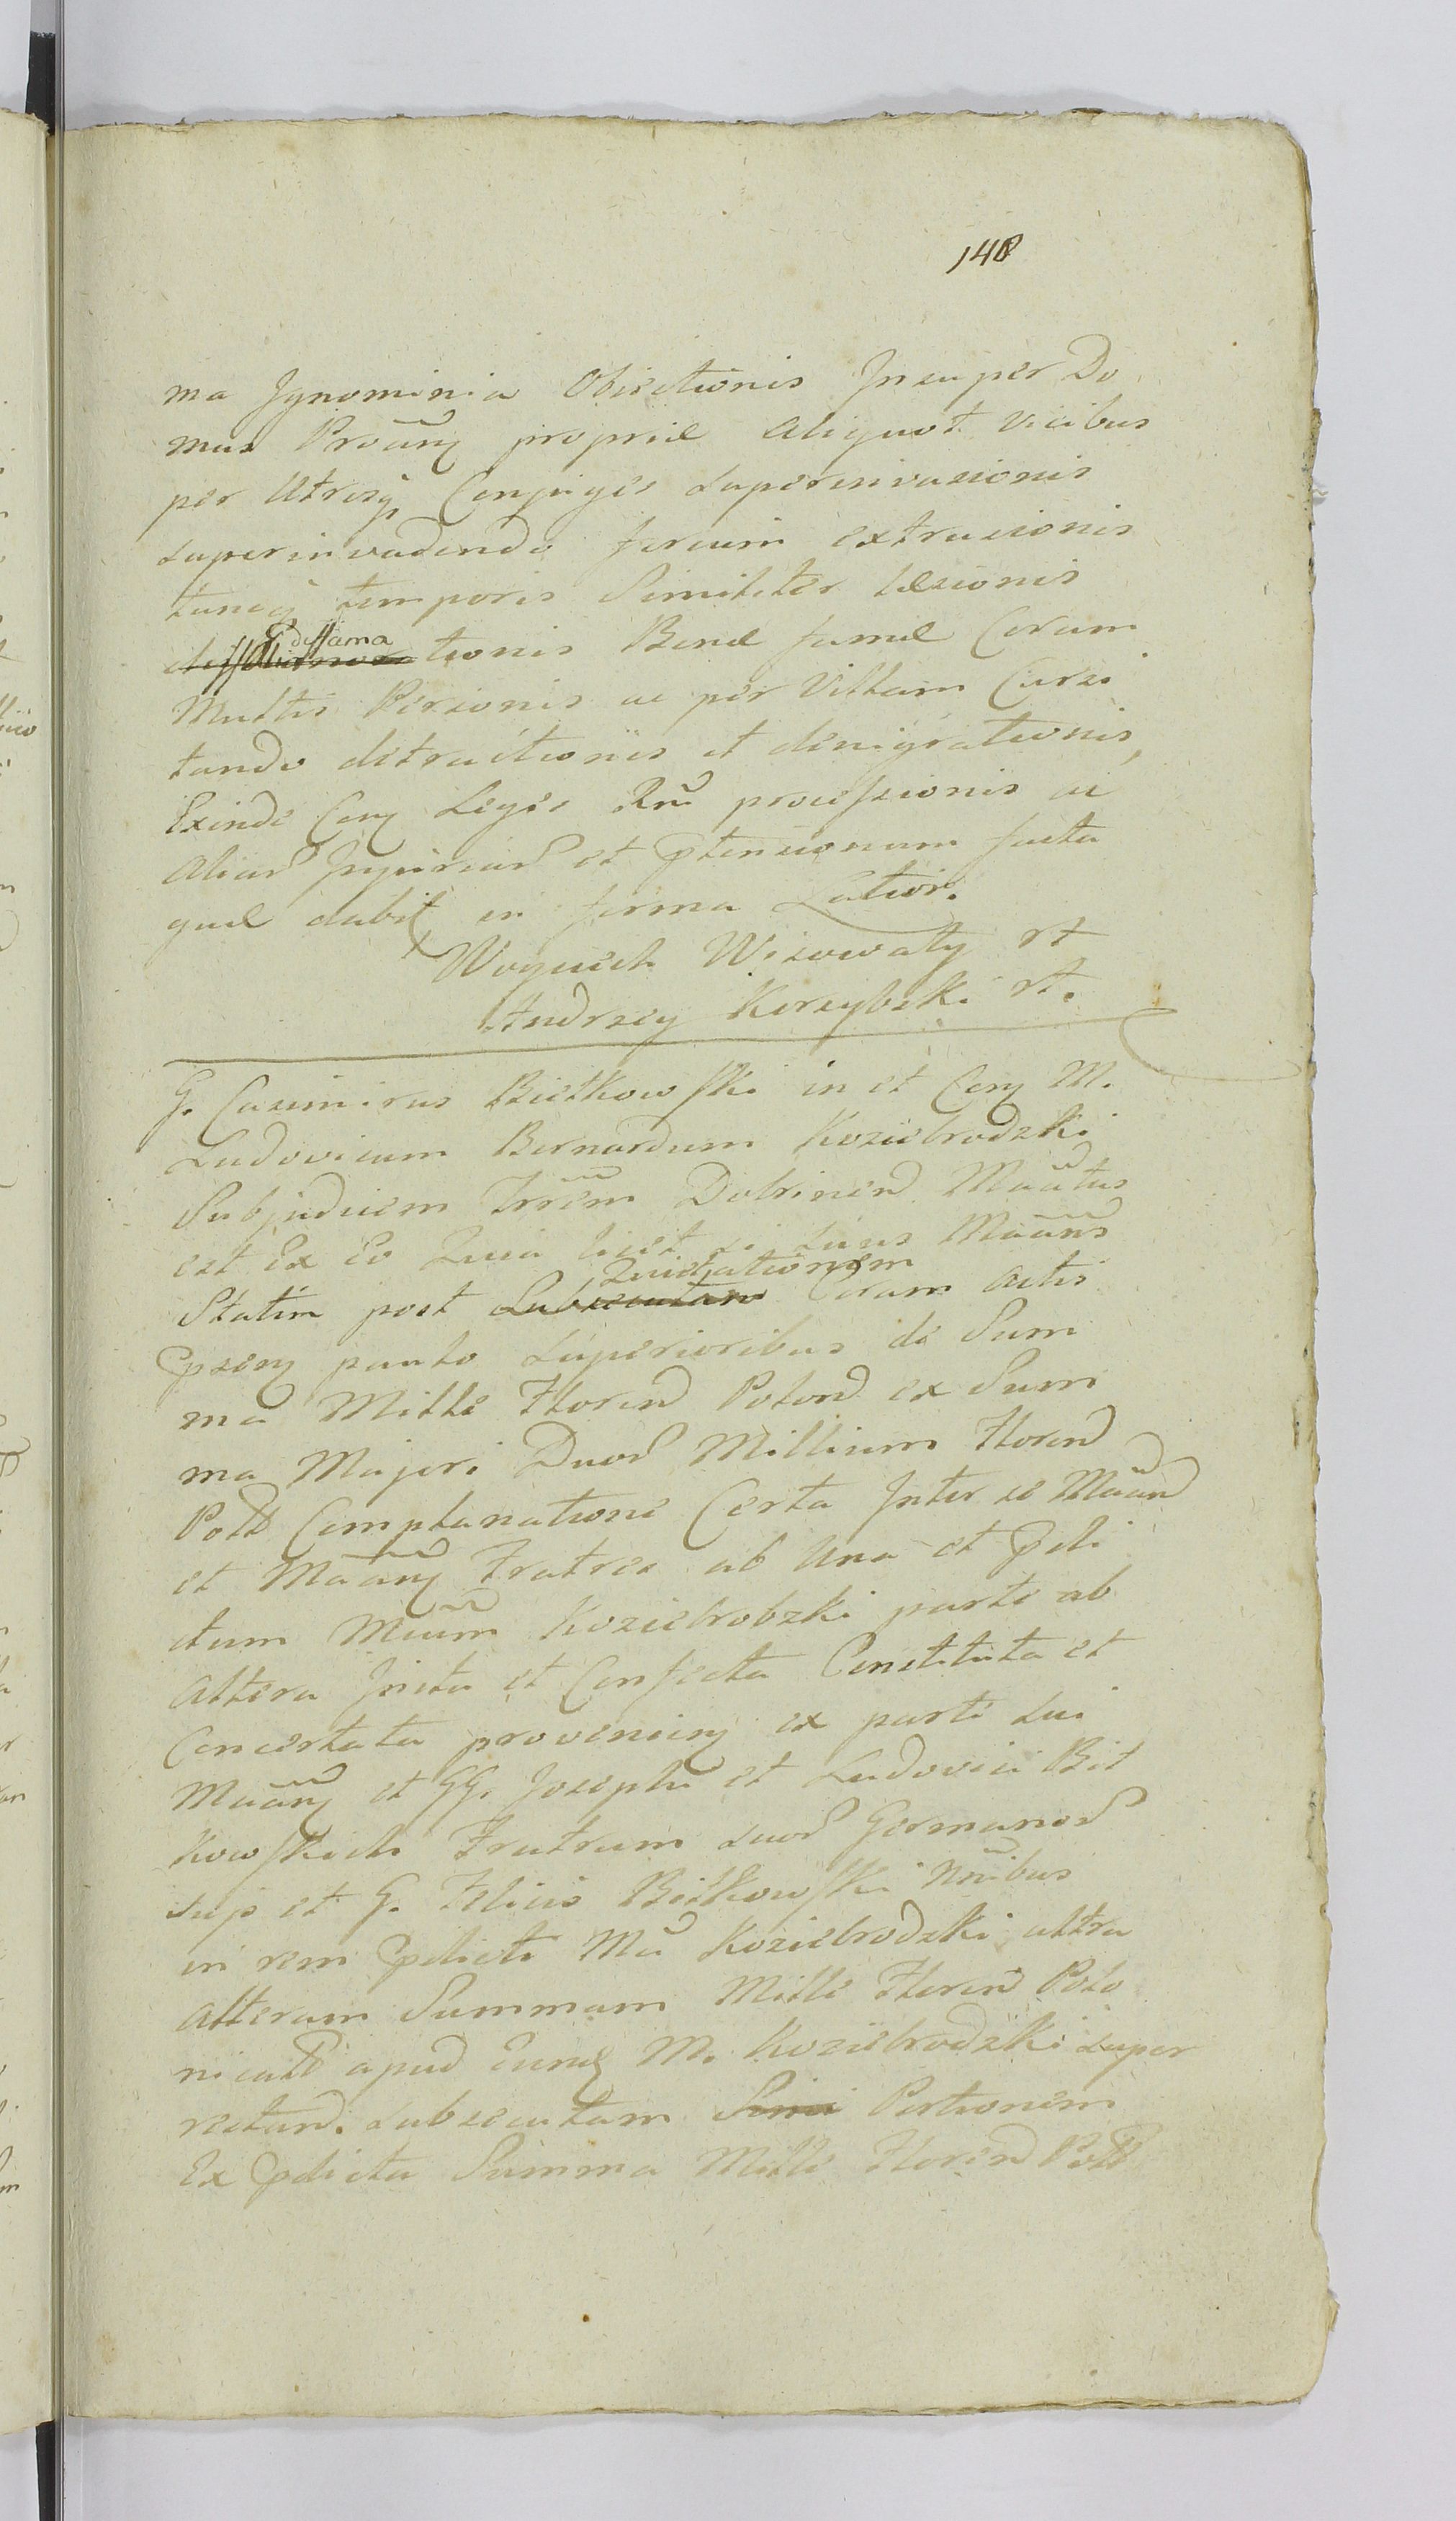 148
ma Ignominia Obiectionis Insuper Do
mus Proãnʒ propriæ Aliquot Vicibus
per Utrosqʒ Conjuges superinvasionis
superinvadendo forium extrusionis
tuncqʒ temporis Similiter læsionis
diffama
tionis Benæ famæ Coram
Multis Personis ac per Villam Cursi
tando detractionis et denigrationis,
Exinde Conʒ Leges Rñi processionis ac
Aliar Injuriar et Ptensionum facta
quæ dabit in forma Latior.
Woyciech Wisowaty rt
Andrzey Korzybski rt.
G. Casimirus Bielkowski in et Conʒ M.
Ludovicum Bernardum Koziebrodzki
Subjudicem Trrem Dobrinen Maãtus
est Ex Eo Quia licet is suus Maãns
Quietationem
Statim post Subsecutam Coram actis
Psenʒ paulo superioribus de Sum
ma Mille Floren Polon ex Sum
ma Majori Duor Millium Floren
Poll Complanatione Certa Inter se Maãn
et Maãnʒ Fratres ab Una et Pdi
ctum Maãm Koziebrodzki parte ab
Altera Inita et Confecta Constituta et
Concertata provenienʒ ex parte sui
Maãnʒ et GG. Josephi et Ludovici Biel
kowskich Fratrum suor Germanor
sup et G. Felicis Bielkowski Nñibus
in rem Pdicti Mã Koziebrodzki ultra
Alteram Summam Mille Floren Polo
nicall apud Eundʒ M. Koziebrodzki super
restan. subsecutam Portionem
Ex Pdicta Summa Mille Floren Poll